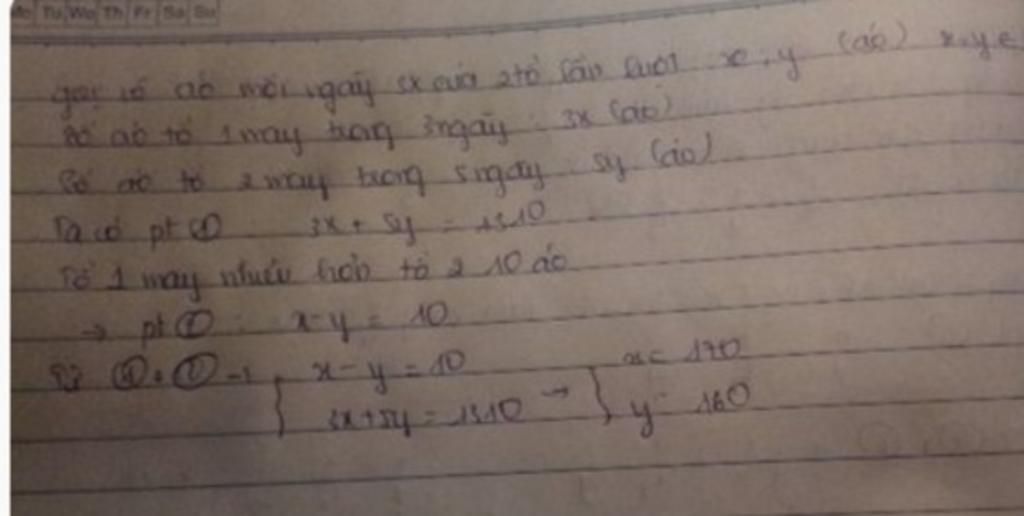 Mo Tu We Th Fr Sa Su
gọi số áo mỗi ngày sx của 2 tổ lần lượt x, y (áo) x, y ∈
Số áo tổ 1 may trong 3 ngày: 3x (áo)
Số áo tổ 2 may trong 5 ngày: 5y (áo)
Ta có pt ① 3x + 5y = 1310
Tổ 1 may nhiều hơn tổ 2 10 áo
→ pt ②: x - y = 10
Từ ① + ② → { x - y = 10 } x = 170
{ 3x + 5y = 1310 → } y = 160